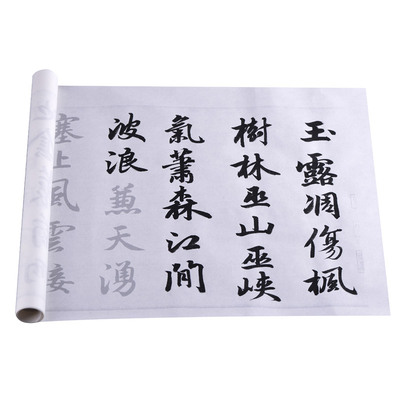 玉露凋傷楓
樹林巫山巫峽
氣蕭森江間
波浪蒹天湧
塞上風雲接